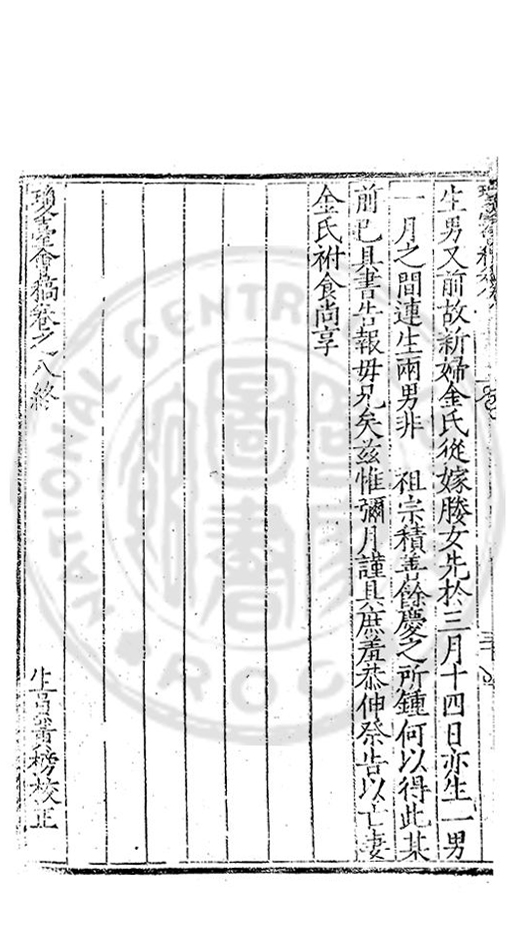 生男又前故新婦金氏從嫁媵女先於三月十四日亦生一男
一月之間連生兩男非　祖宗積善餘慶之所鍾何以得此某
前已具書告報毋兄矣兹惟彌月謹具庶羞恭伸祭告以亡妻
金氏祔食尚享
瓊臺會稿卷之八終　生員黃榜校正
NATIONAL CENTR
R O C